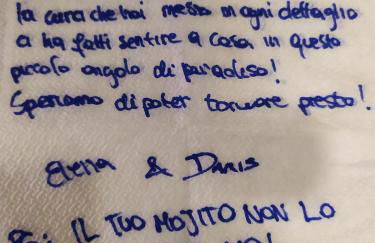 la cura che hai messo in ogni dettaglio
ci ha fatti sentire a casa in questo
piccolo angolo di paradiso!
Speriamo di poter tornare presto!
Elena & Denis
IL TUO MOJITO NON LO